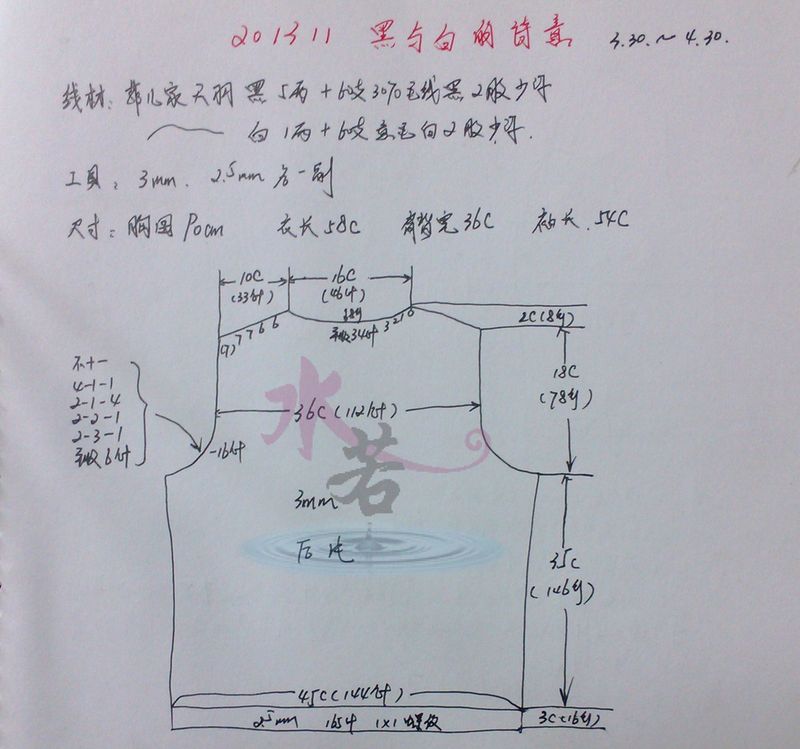 201311 黑与白的诗意 3.30.~4.30.
线材: 菲儿家天羽 黑 5两 + 60支30%毛线黑2股少许
白 1两 + 60支 毛白2股少许.
工具: 3mm. 2.5mm 各一副
尺寸: 胸围 90cm 衣长 58C 肩背宽 36C 袖长. 54C
10C 16C
(33针) (46针)
2C(8行)
平收34针 3 2 1 0
(9) 7 7 6 6
不十一
4-1-1
2-1-4
2-2-1
2-3-1
平收6针
-16针
36C(112针)
18C
(78行)
水若
3mm
后片
35C
(146行)
45C(144针)
2.5mm 165针 1x1螺纹
3C(16行)